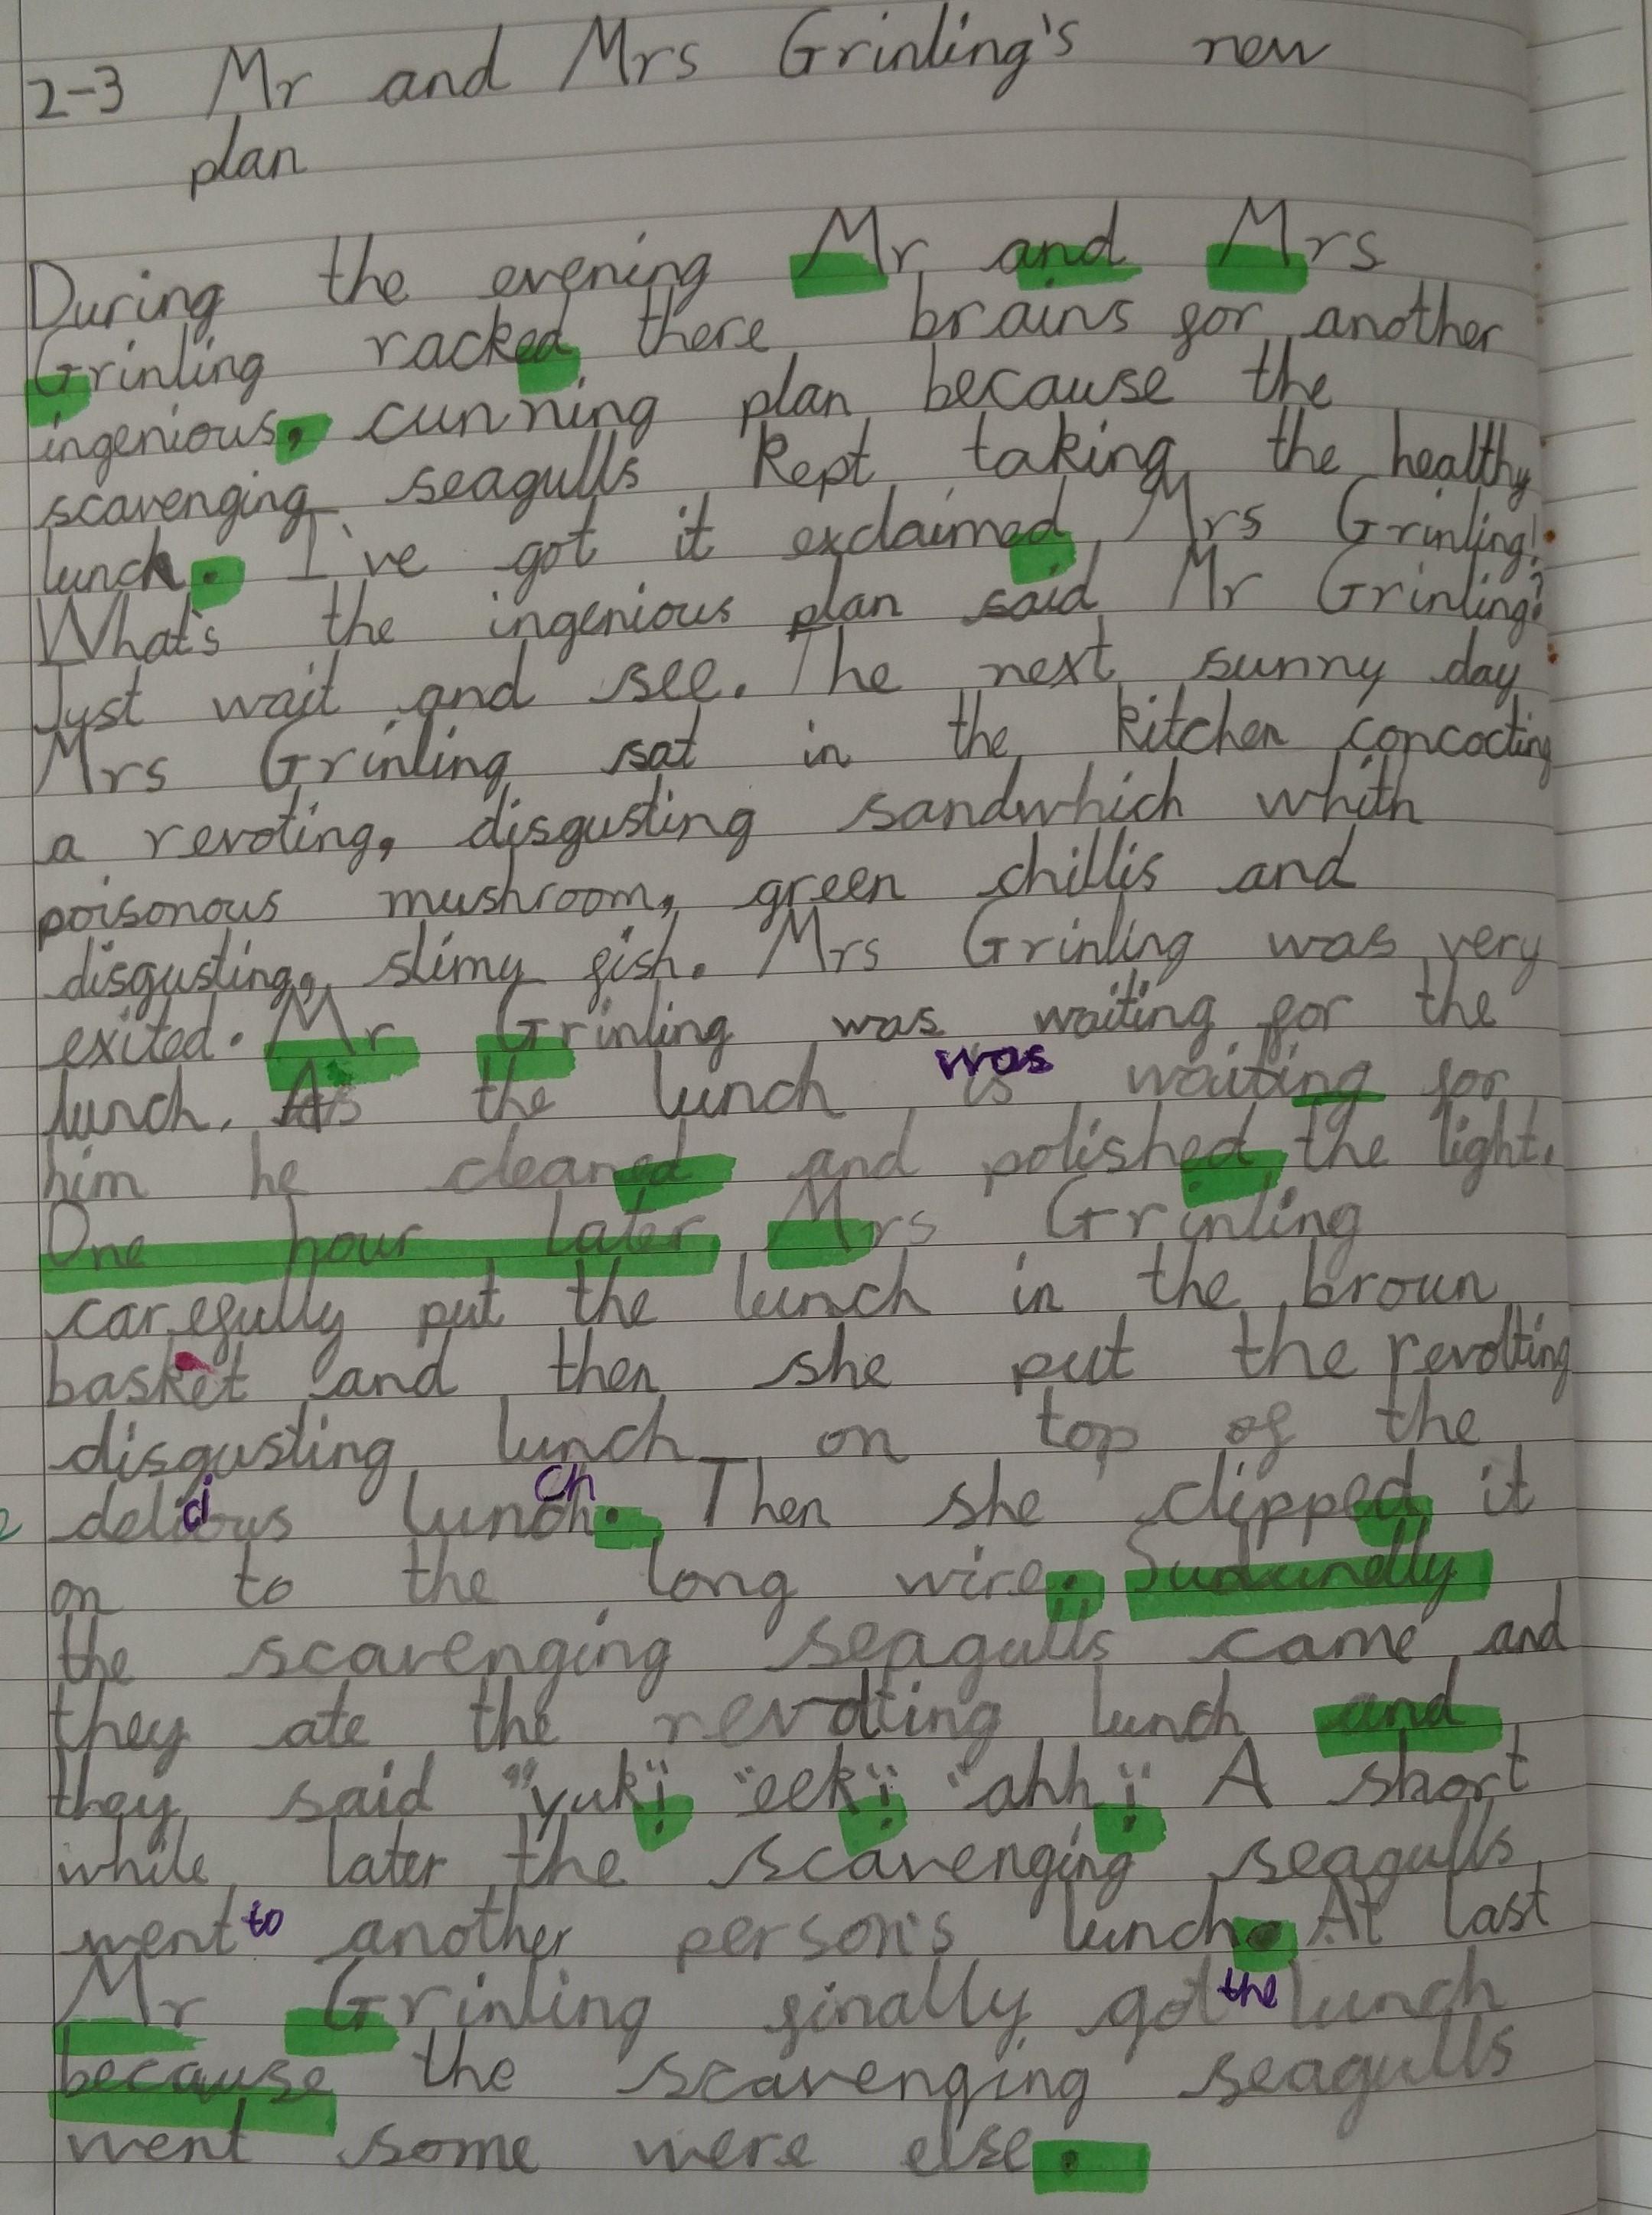 2-3 Mr and Mrs Grinling's new
plan
During the evening Mr and Mrs
Grinling racked there brains for another
ingenious, cunning plan because the
scavenging seagulls kept taking the healthy
lunch. I've got it exclaimed Mrs Grinling!
What's the ingenious plan said Mr Grinling?
Just wait and see. The next sunny day
Mrs Grinling sat in the kitchen concocting
a revoting, disgusting sandwhich whith
poisonous mushroom, green chillis and
disgusting, slimy fish. Mrs Grinling was very
exited. Mr Grinling was waiting for the
lunch. As the lunch was waiting for
him he cleaned and polished the light.
One hour later Mrs Grinling
carefully put the lunch in the broun
basket and then she put the revolting
disgusting lunch on top of the
delicious lunch. Then she clipped it
on to the long wire. Sudunelly
the scavenging seagulls came and
they ate the revolting lunch and
they said "yuk!" "eek!" "ahh!" A short
while later the scavenging seagulls
went to another person's lunch. At last
Mr Grinling finally got the lunch
because the scavenging seagulls
went some were else.